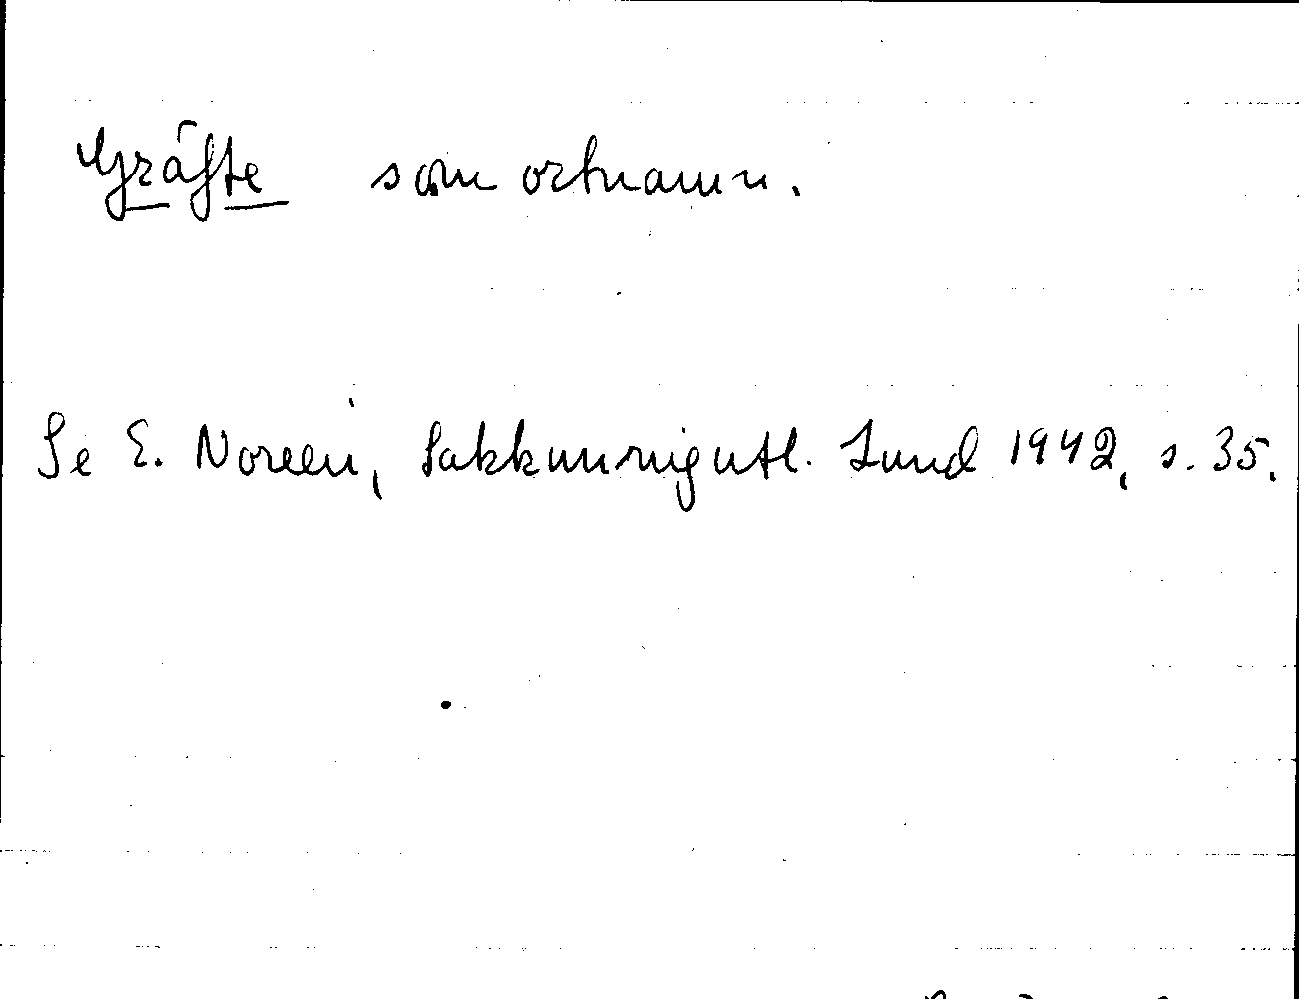 Gräfte som ortnamn.
Se E. Noreen, Sakkunnigutl. Lund 1942, s. 35.